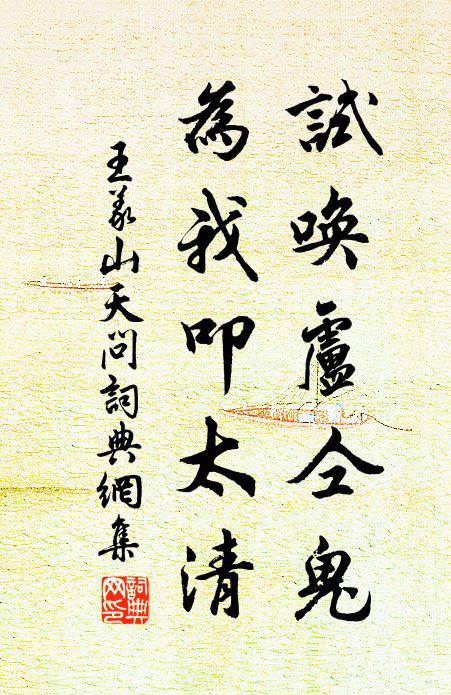 試喚盧仝鬼
為我叩太清
王義山天問詞典網集
詞典网印